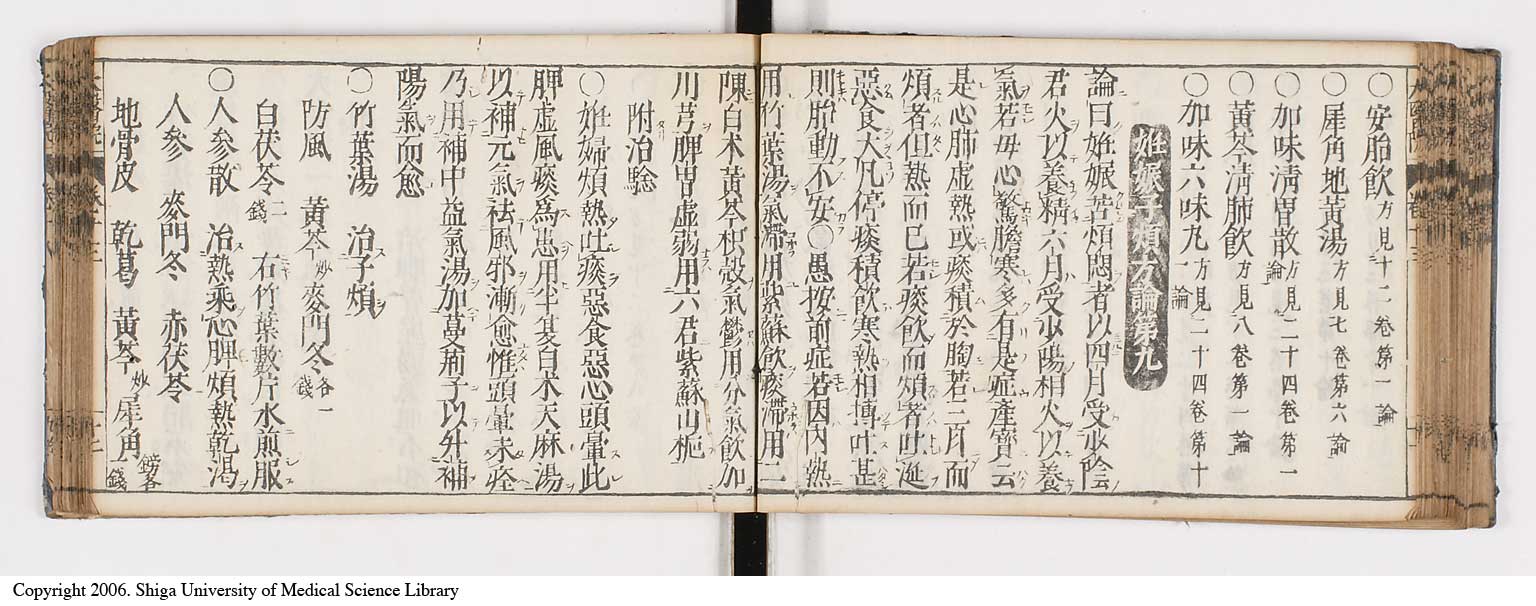 〇安胎飲方見十二卷第一論
〇犀角地黃湯方見七卷第六論
〇加味淸胃散方見二十四卷第一論
〇黃芩淸肺飲方見八卷第一論
〇加味六味丸方見二十四卷第十一論
姙娠子煩方論第九
論曰姙娠苦煩悶者以四月受少陰
君火以養精六月受少陽相火以養
氣若母心驚膽寒多有是症產寶云
是心肺虛熱或痰積於胸若三月而
煩者但熱而已若痰飲而煩者吐涎
惡食大凡停痰積飲寒熱相搏吐甚
則胎動不安〇愚按前症若因內熱
用竹葉湯氣滯用紫蘇飲痰滯用二
陳白朮黃芩枳殼氣鬱用分氣飲加
川芎脾胃虛弱用六君紫蘇山梔
附治驗
〇姙婦煩熱吐痰惡食惡心頭暈此
脾虛風痰爲患用半夏白朮天麻湯
以補元氣祛風邪漸愈惟頭暈未痊
乃用補中益氣湯加蔓荊子以升補
陽氣而愈
〇竹葉湯 治子煩
防風 黃芩炒麥門冬各一錢
白茯苓二錢 右竹葉數片水煎服
〇人參散 治熱乘心脾煩熱乾渴
人參 麥門冬 赤茯苓
地骨皮 乾葛 黃芩炒犀角鎊各錢
Copyright 2006. Shiga University of Medical Science Library